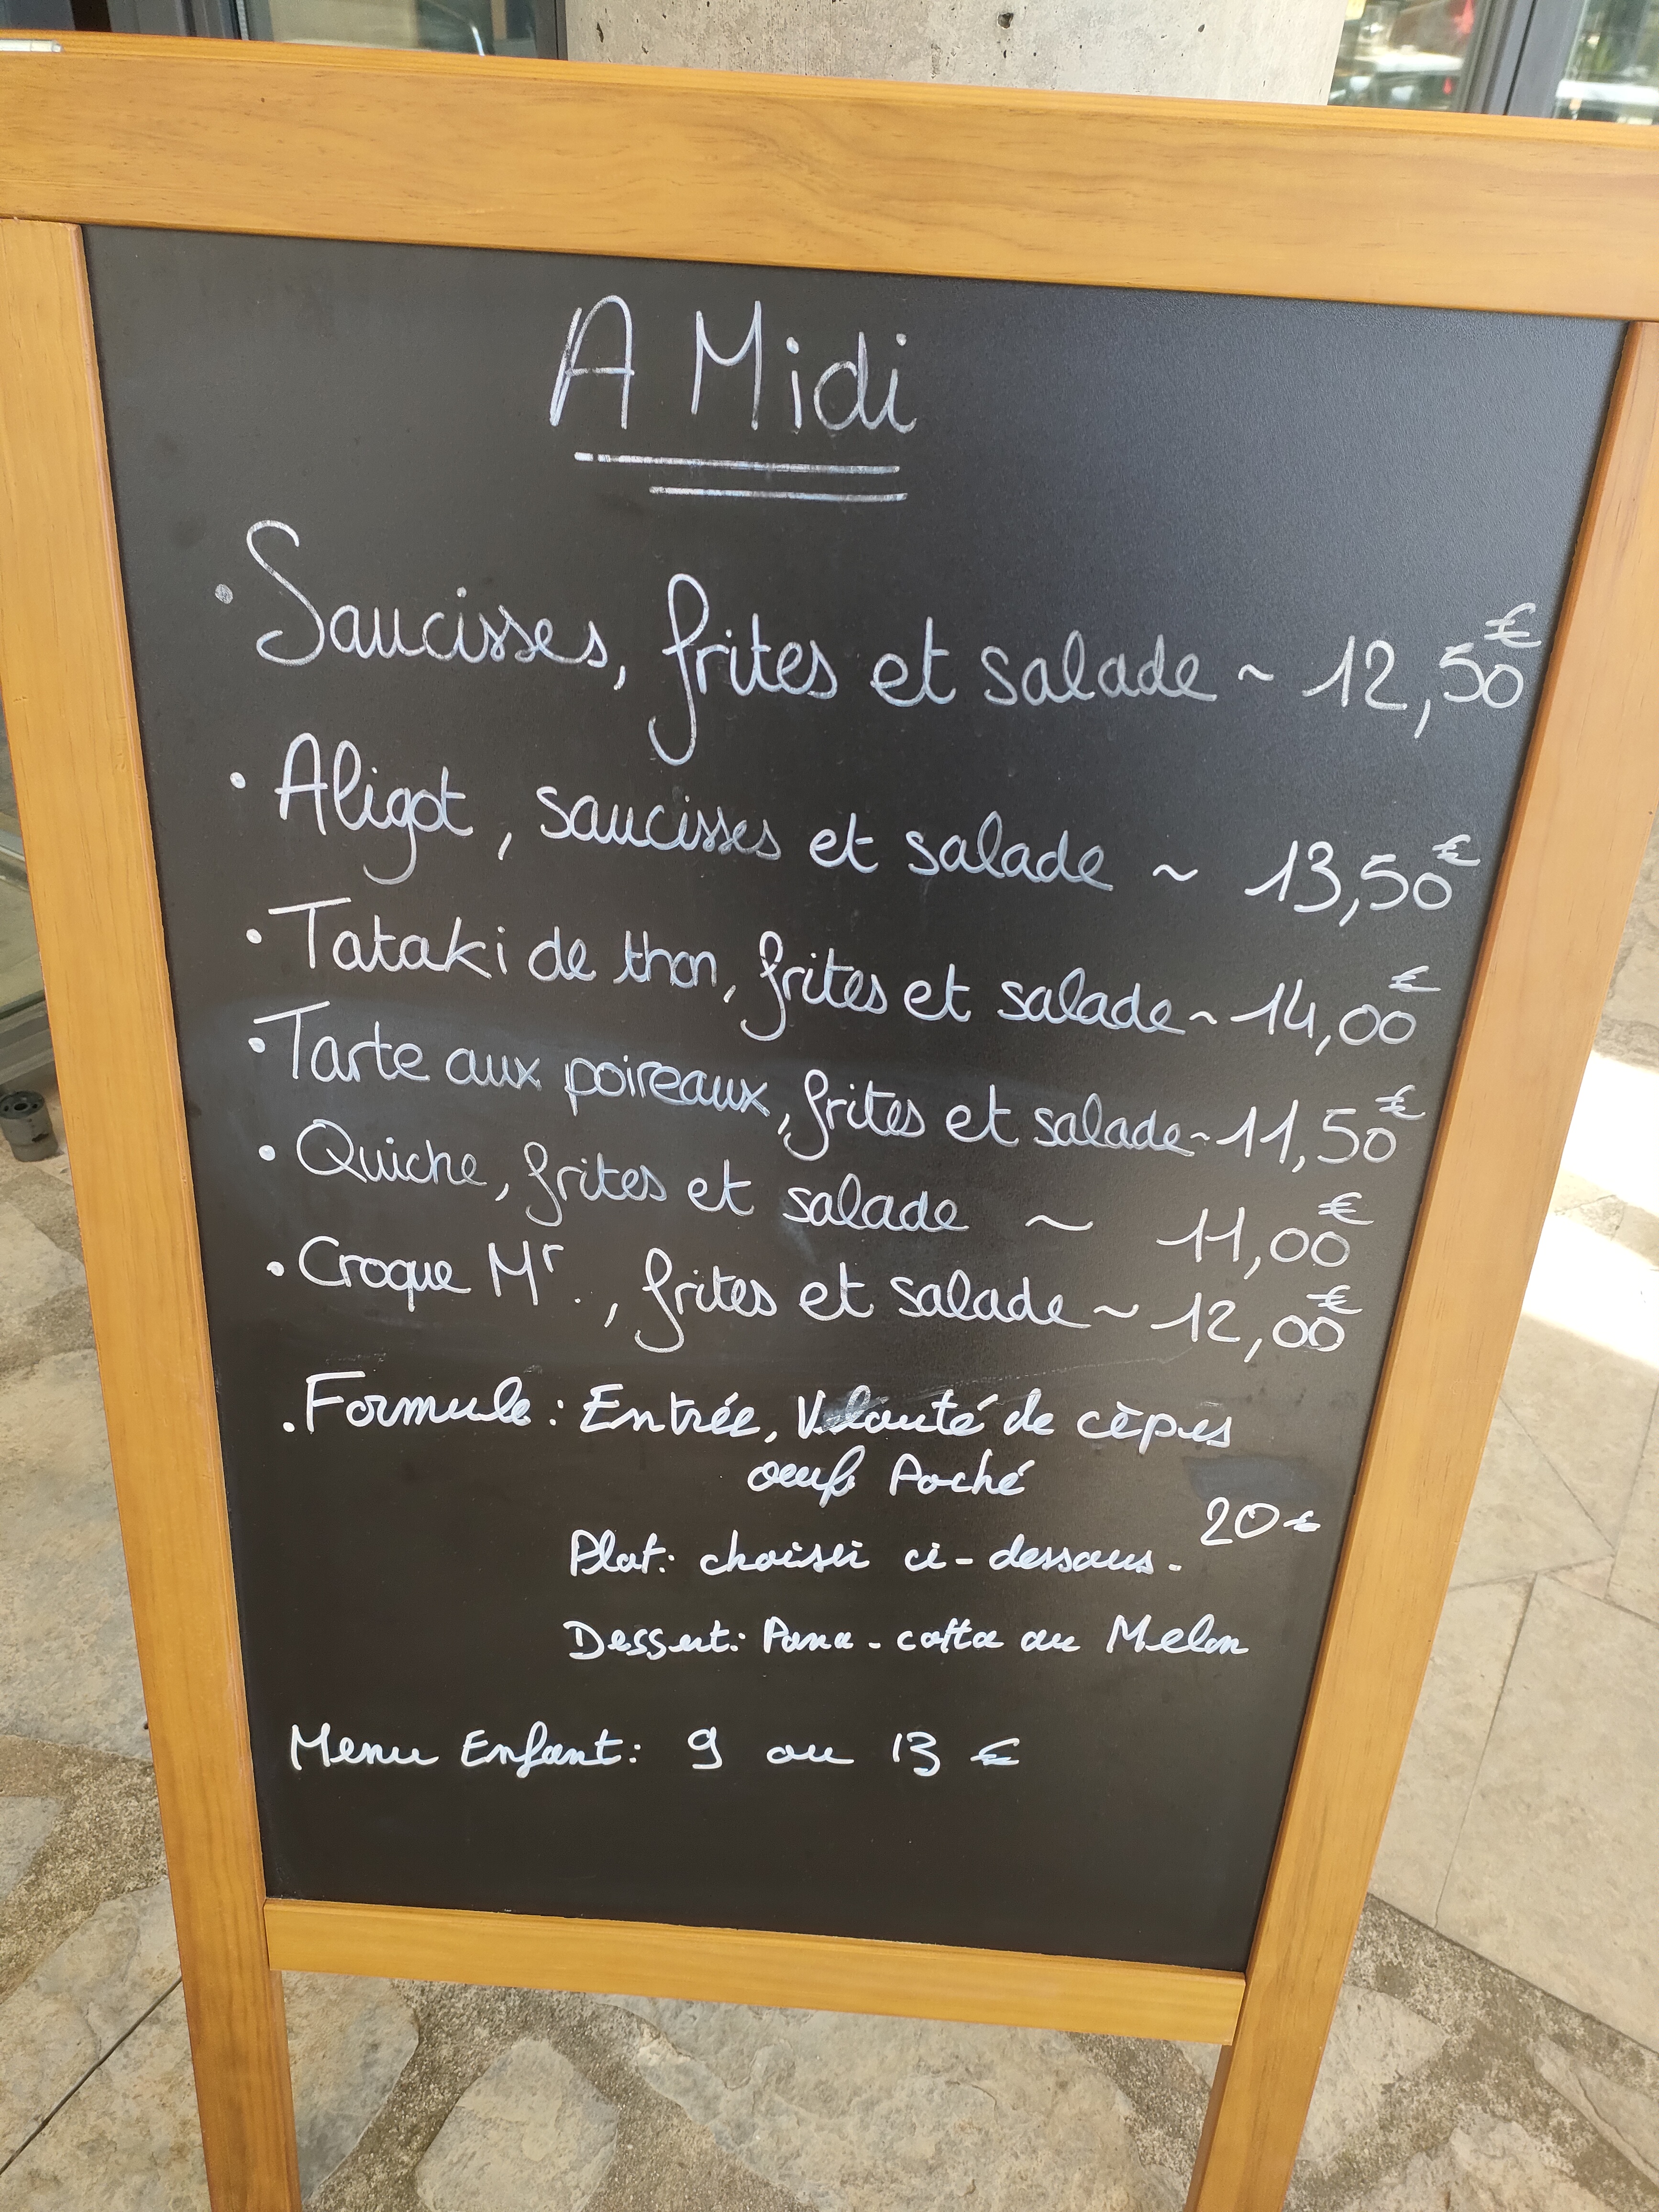 A Midi
• Saucisses, frites et salade ~ 12,50€
• Aligot, saucisses et salade ~ 13,50€
• Tataki de thon, frites et salade ~ 14,00€
• Tarte aux poireaux, frites et salade ~ 11,50€
• Quiche, frites et salade ~ 11,00€
• Croque Mr., frites et salade ~ 12,00€
. Formule : Entrée, Velouté de cèpes
oeuf Poché
20€
Plat : choisir ci-dessous.
Dessert : Pana-cotta au Melon
Menu Enfant : 9 ou 13 €